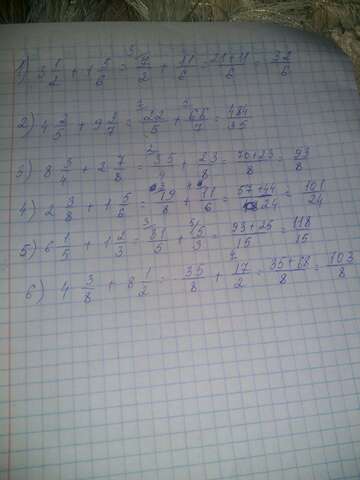 1) 3 1/2 + 1 5/6 = 7/2 + 11/6 = 21+11/6 = 32/6
2) 4 2/5 + 9 3/7 = 22/5 + 66/7 = 484/35
3) 8 3/4 + 2 7/8 = 35/4 + 23/8 = 70+23/8 = 93/8
4) 2 3/8 + 1 5/6 = 19/8 + 11/6 = 57+44/24 = 101/24
5) 6 1/5 + 1 2/3 = 31/5 + 5/3 = 93+25/15 = 118/15
6) 4 3/8 + 8 1/2 = 35/8 + 17/2 = 35+68/8 = 103/8